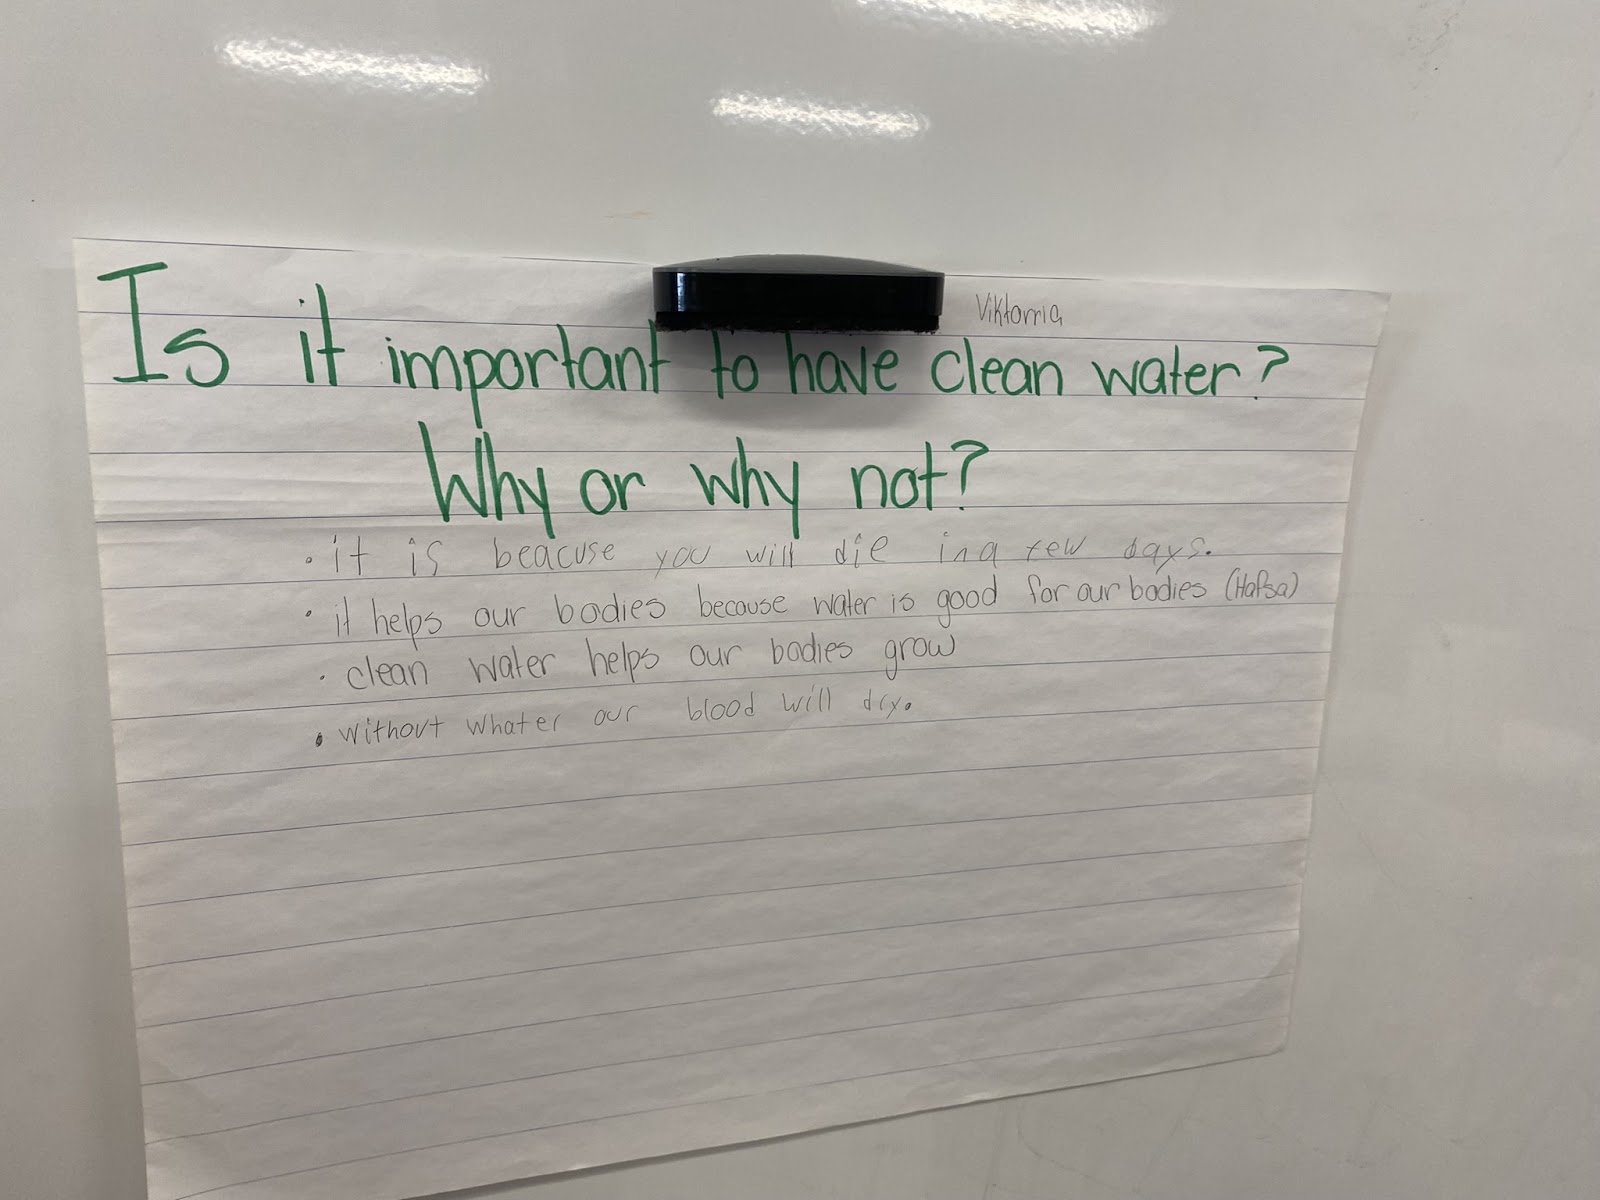 Viktorria
Is it important to have clean water?
Why or why not?
• it is beacuse you will die in a few days.
• it helps our bodies because water is good for our bodies (Hafsa)
• clean water helps our bodies grow
• without whater our blood will dry.